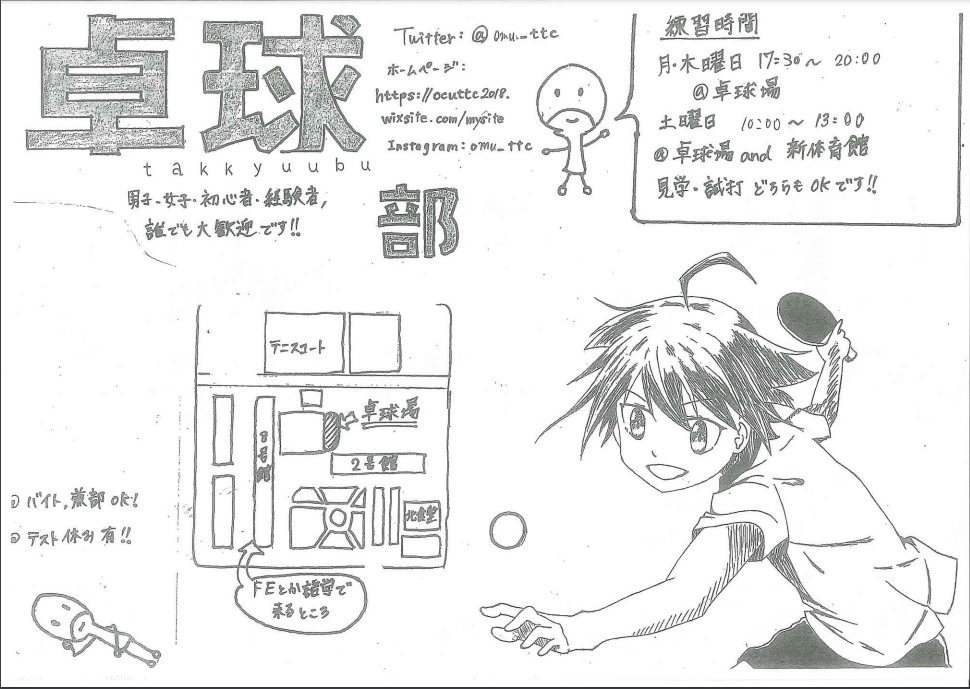 卓球
takkyuubu
部
男子・女子・初心者・経験者,
誰でも大歓迎です!!
Twitter: @omu_ttc
ホームページ:
https://ocuttc2018.
wixsite.com/mysite
Instagram: omu_ttc
練習時間
月・木曜日 17:30～20:00
@卓球場
土曜日 10:00～13:00
@卓球場 and 新体育館
見学・試打 どちらもOKです!!
テニスコート
卓球場
8号館
2号館
北食堂
FEとか語学で
来るところ
バイト,兼部OK!
テスト休み有!!